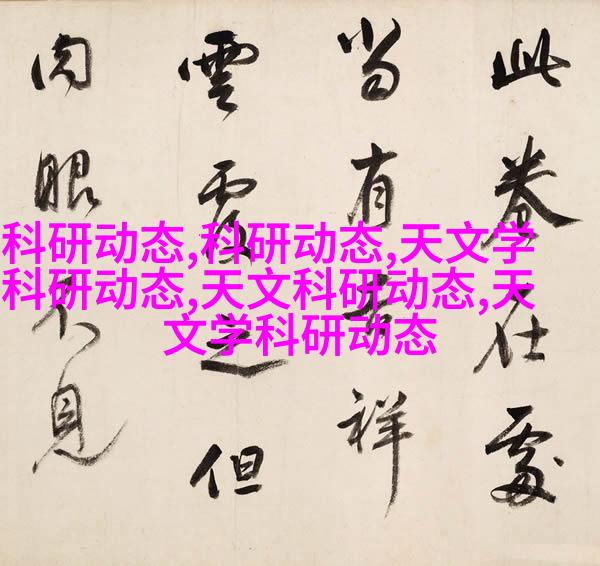 此卷在處
當有吉祥
雲覆之但
肉眼不見
科研动态,科研动态,天文学
科研动态,天文科研动态,天
文学科研动态